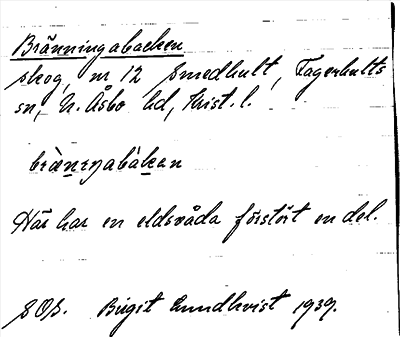 Bränningabacken
skog, nr 12, Smedhult, Fagerhults
sn, N. Åsbo hd, Krist. l.
brä̀nıŋabàkan
Här har en eldsvåda förstört en del.
SOS. Birgit Lundkvist 1939.